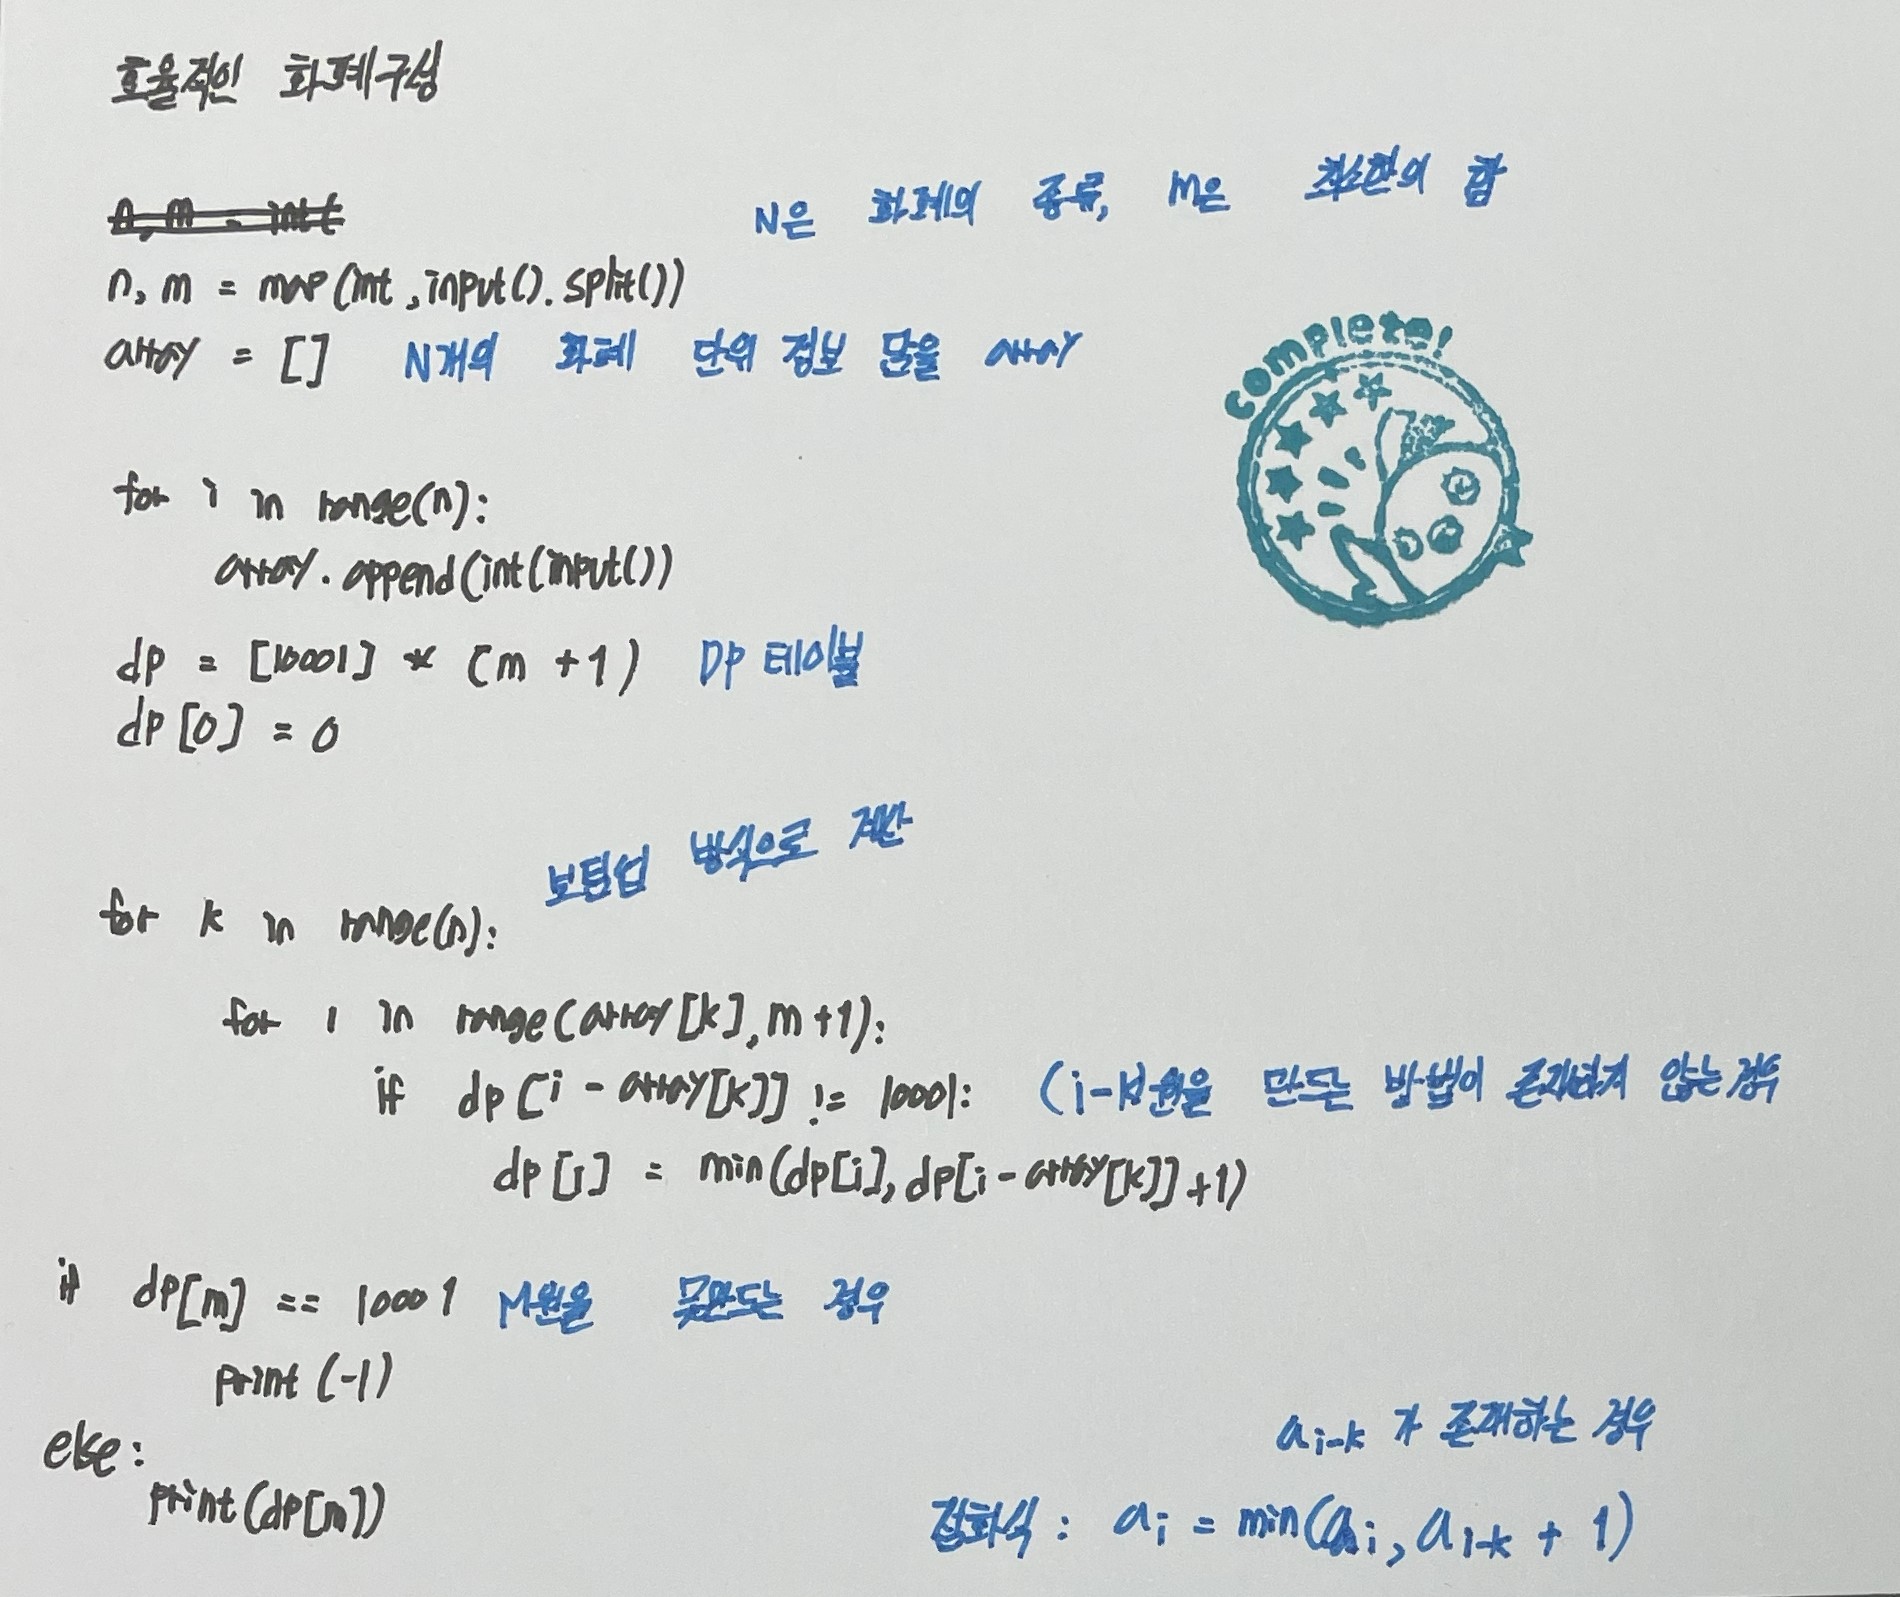 효율적인 화폐구성
n, m = int(
N은 화폐의 종류, M은 최소한의 합
n, m = map(int, input().split())
array = [] N개의 화폐 단위 정보 담을 array
complete!
for i in range(n):
array.append(int(input())
dp = [10001] * (m + 1) DP 테이블
dp[0] = 0
보텀업 방식으로 계산
for k in range(n):
for i in range(array[k], m+1):
if dp[i - array[k]] != 10001: (i-k)원을 만드는 방법이 존재하지 않는 경우
dp[i] = min(dp[i], dp[i - array[k]] +1)
if dp[m] == 10001 M원을 못만드는 경우
print (-1)
else:
print(dp[m])
a i-k 가 존재하는 경우
점화식 : a i = min(a i, a i-k + 1)